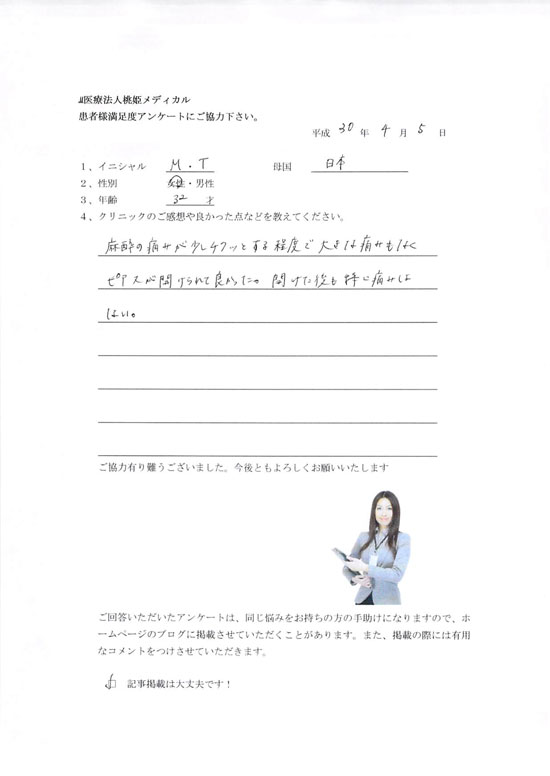 医療法人桃姫メディカル
患者様満足度アンケートにご協力下さい。
平成 30 年 4 月 5 日
1、イニシャル M.T 母国 日本
2、性別 女性・男性
3、年齢 32 才
4、クリニックのご感想や良かった点などを教えてください。
麻酔の痛みが少しチクッとする程度で大きな痛みもなく
ピアスが開けられて良かった。開けた後も特に痛みは
ない。
ご協力有り難うございました。今後ともよろしくお願いいたします
ご回答いただいたアンケートは、同じ悩みをお持ちの方の手助けになりますので、ホ
ームページのブログに掲載させていただくことがあります。また、掲載の際には有用
なコメントをつけさせていただきます。
記事掲載は大丈夫です！